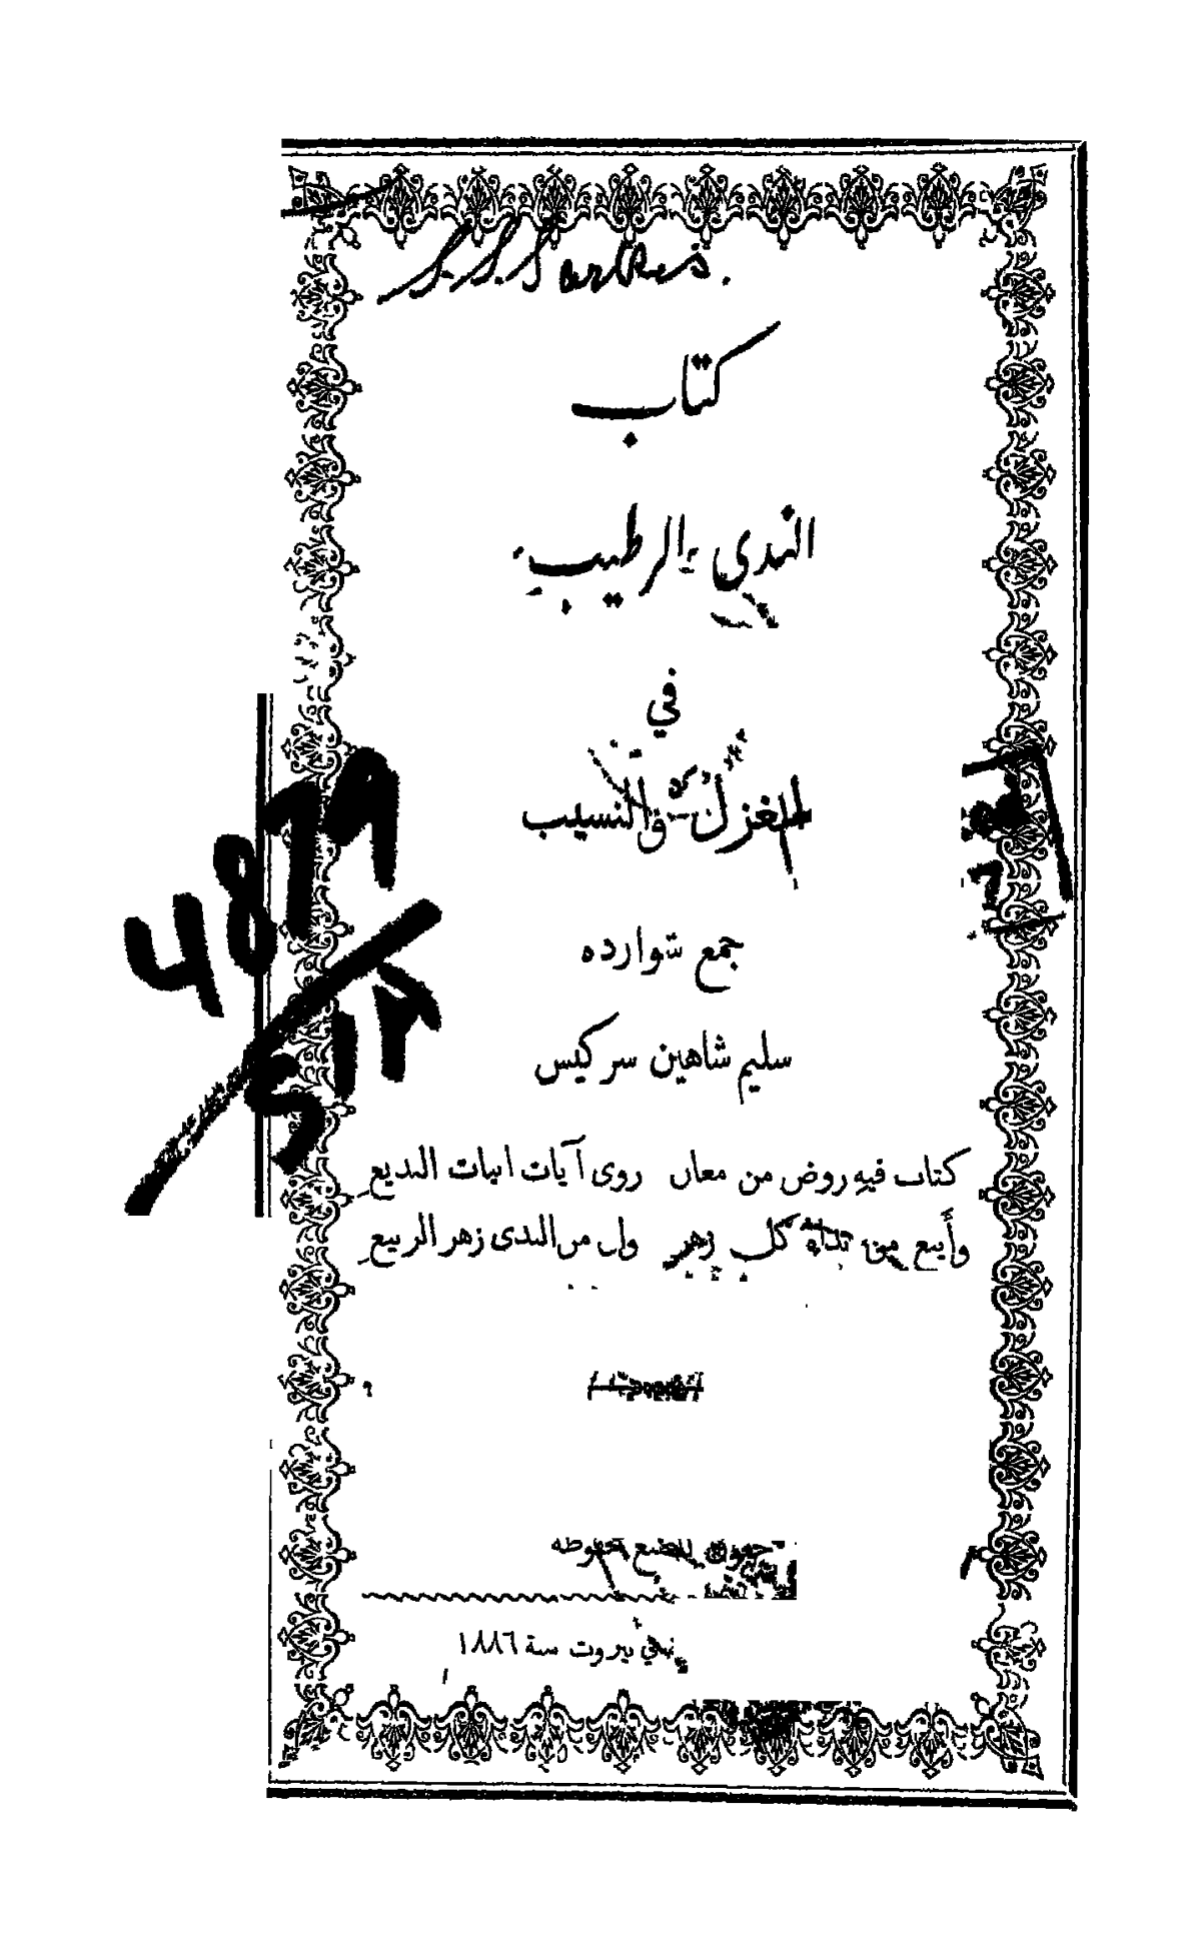 كتاب
الندى الرطيب
في
الغزل والنسيب
جمع شوارده
سليم شاهين سركيس
كتاب فيه روض من معانٍ روى آيات ابيات البديع
وأينع من نداه كل زهر ولى من الندى زهر الربيع
حقوق الطبع محفوظه
في بيروت سنة ١٨٨٦